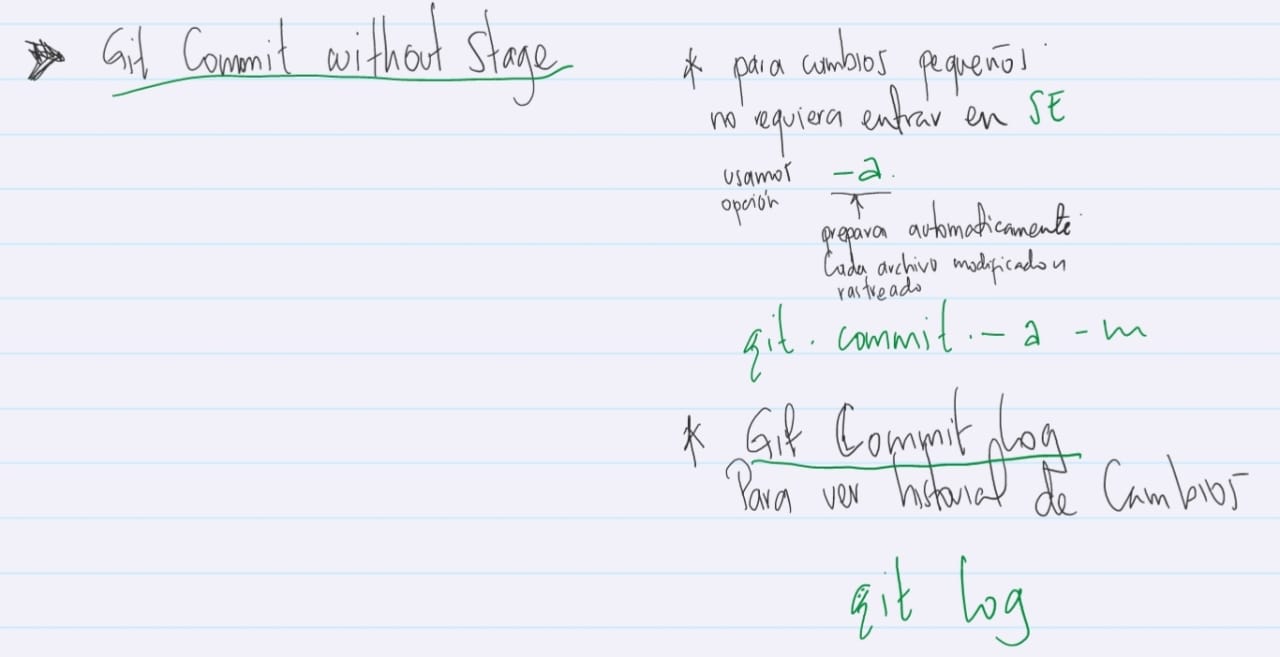 Git Commit without Stage
* para cambios pequeños
no requiera entrar en SE
usamos -a
opción
prepara automaticamente
Cada archivo modificado y
rastreado
git commit -a -m
* Git Commit Log
Para ver historial de Cambios
git log